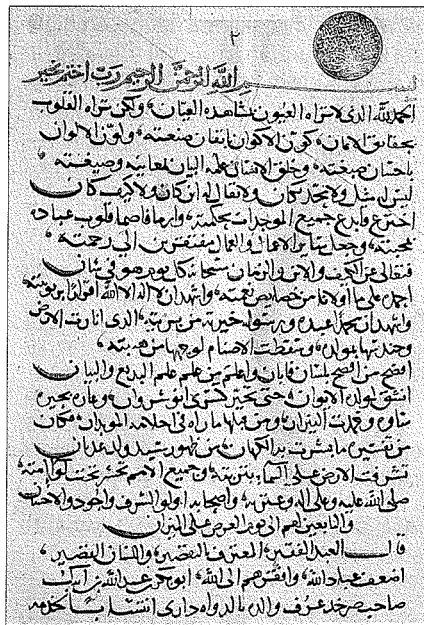 ٢
بسم الله الرحمن الرحيم رب اختم بخير
الحمد لله الذى لا تراه العيون بمشاهدة العيان، ولكن تراه القلوب
بحقائق الايمان، كون الاكوان باتقان صنعته، ولون الالوان
باحسان صبغته، وخلق الانسان علمه البيان بمعانيه وصيغته،
ليس له مثل ولا يحد بمكان ولا يقال له اين كان ولا كيف كان
اخترع وابدع جميع الموجودات بحكمته، وارضا قلوب عباده
بمحبته، وجعل سائر الاعمال والعمال مفتقرين الى رحمته،
فتعالى عن الكيف والاين والزمان سبحانه كل يوم هو فى شان
احمده على ما اولانا من خصايص نعمته، واشهد ان لا اله الا الله اقرارا بربوبيته
واشهد ان محمدا عبده ورسوله خيرته من بريته، الذى انارت الارض
وجنتها بمولده، وتقطت الاصنام لوجهها من هيبته،
افصح من افصح بلسان فابان واعلم من علم علم البديع والبيان
انشق لمولده الايوان، حتى تحير كسرى انوشروان، وغارت بحيرة
ساوه وخمدت النيران، ومن قبلها ما راه فى احلامه الموبدان، فكان
من تفسير ما بشرت به الكهان، من ظهور سيد ولد عدنان
تشرفت الارض على السما بتربته، وجميع الامم تحشر تحت لوا امته،
صلى الله عليه وعلى اله وعترته، واصحابه اولوا الشرف والجود والاحسان
والتابعين لهم الى يوم العرض على الميزان
قال العبد الفقير، المعترف بالتقصير، واللسان القصير،
اضعف عباد الله، وافقرهم الى الله، ابو بكر بن عبد الله بن ايبك
صاحب صرخد عرف والده بالدوادارى انتسابا بخدمه